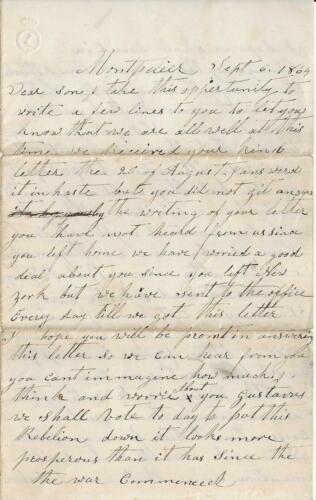 Montpelier Sept 6. 1864
Dear son I take this oppertunity to
write a few lines to you to let you
know that we are all well at this
time we received your kind
letter the 20 of August. I answerd
it in haste but you did not git answer
by the writing of your letter
you thare not heald from us since
you left home we have woried a good
deal about you since you left New
York but we have sent to the office
Every day till we got this letter
I hope you will be promt in answering
this letter so we can hear from you
you cant immagine how much i
think and worre about you Gustavus
we shall vote to day to put this
Rebelion down it looks more
prosperous than it has since the
the war Commenced